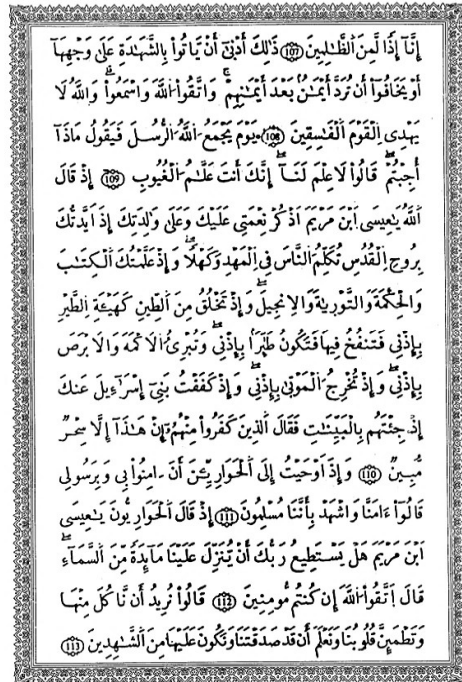 إِنَّآ إِذٗا لَّمِنَ ٱلظَّٰلِمِينَ (107) ذَٰلِكَ أَدْنَىٰٓ أَنْ يَّاتُوا۟ بِالشَّهَٰدَةِ عَلَىٰ وَجْهِهَآ
أَوْ يَخَافُوٓا۟ أَن تُرَدَّ أَيْمَٰنُۢ بَعْدَ أَيْمَٰنِهِمْۖ وَاتَّقُوا۟ اللَّهَ وَاسْمَعُوا۟ۖ وَاللَّهُ لَا
يَهْدِي اِلْقَوْمَ اَلْفَٰسِقِينَۖ (108) يَوْمَ يَجْمَعُ اُللَّهُ اُلرُّسُلَ فَيَقُولُ مَاذَآ
أُجِبْتُمْۖ قَالُوا۟ لَا عِلْمَ لَنَآۖ إِنَّكَ أَنتَ عَلَّٰمُ اُلْغُيُوبِۖ (109) إِذْ قَالَ
اَللَّهُ يَٰعِيسَى اَبْنَ مَرْيَمَ اَذْكُرْ نِعْمَتِي عَلَيْكَ وَعَلَىٰ وَٰلِدَتِكَ إِذَ اَيَّدتُّكَ
بِرُوحِ اِلْقُدُسِ تُكَلِّمُ اُلنَّاسَ فِي اِلْمَهْدِ وَكَهْلٗاۖ وَإِذْ عَلَّمْتُكَ اَلْكِتَٰبَ
وَالْحِكْمَةَ وَالتَّوْرَىٰةَ وَالِانجِيلَۖ وَإِذْ تَخْلُقُ مِنَ اَلطِّينِ كَهَيْـَٔةِ اِلطَّيْرِ
بِإِذْنِي فَتَنفُخُ فِيهَا فَتَكُونُ طَٰٓئِراَۢ بِإِذْنِيۖ وَتُبْرِئُ اُلَاكْمَهَ وَالَابْرَصَ
بِإِذْنِيۖ وَإِذْ تُخْرِجُ اُلْمَوْتَىٰ بِإِذْنِيۖ وَإِذْ كَفَفْتُ بَنِيٓ إِسْرَآءِيلَ عَنكَ
إِذْ جِئْتَهُم بِالْبَيِّنَٰتِ فَقَالَ اَلذِينَ كَفَرُوا۟ مِنْهُمُۥٓ إِنْ هَٰذَآ إِلَّا سِحْرٞ
مُّبِينٞۖ (110) وَإِذَ اَوْحَيْتُ إِلَى اَلْحَوَارِيِّـۧنَ أَنَ اٰمِنُوا۟ بِي وَبِرَسُولِي
قَالُوٓا۟ ءَامَنَّا وَاشْهَدْ بِأَنَّنَا مُسْلِمُونَۖ (111) إِذْ قَالَ اَلْحَوَارِيُّونَ يَٰعِيسَى
اَبْنَ مَرْيَمَ هَلْ يَسْتَطِيعُ رَبُّكَ أَنْ يُّنَزِّلَ عَلَيْنَا مَآئِدَةٗ مِّنَ اَلسَّمَآءِۖ
قَالَ اَتَّقُوا۟ اُللَّهَ إِن كُنتُم مُّومِنِينَۖ (112) قَالُوا۟ نُرِيدُ أَن نَّاكُلَ مِنْهَا
وَتَطْمَئِنَّ قُلُوبُنَا وَنَعْلَمَ أَن قَدْ صَدَقْتَنَا وَنَكُونَ عَلَيْهَا مِنَ اَلشَّٰهِدِينَ (113)